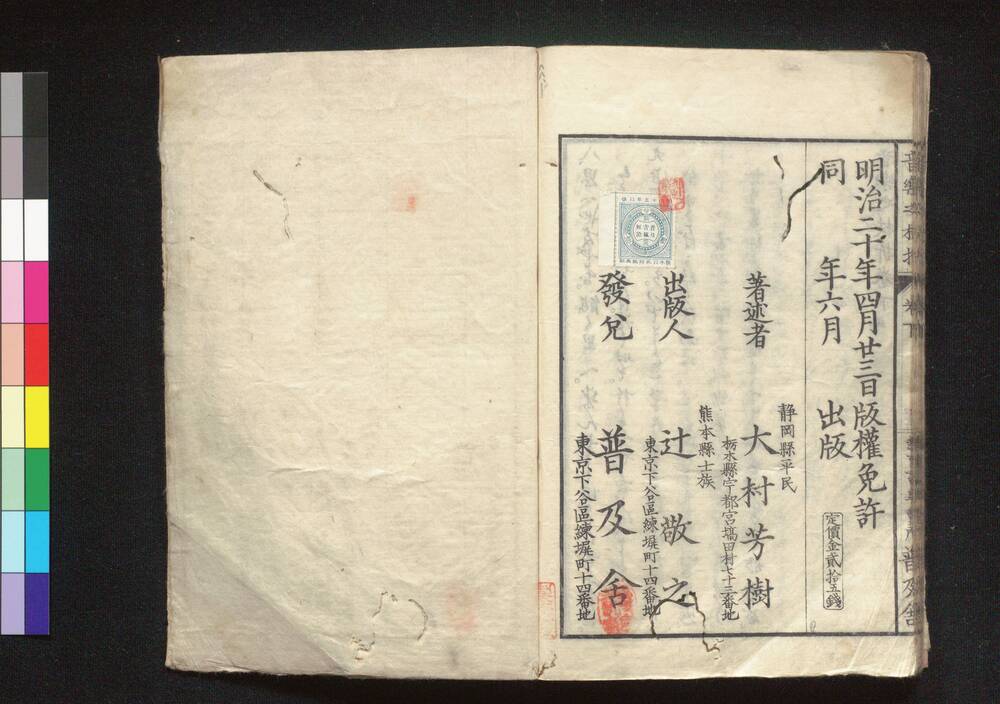 明治二十年四月廿三日版權免許
同 年六月 出版
定價金貳拾五錢
静岡縣平民
著述者 大村芳樹
栃木縣宇都宮塙田村七十三番地
熊本縣士族
出版人 辻敬之
東京下谷區練塀町十四番地
發兌 普及舍
東京下谷區練塀町十四番地
普及舍